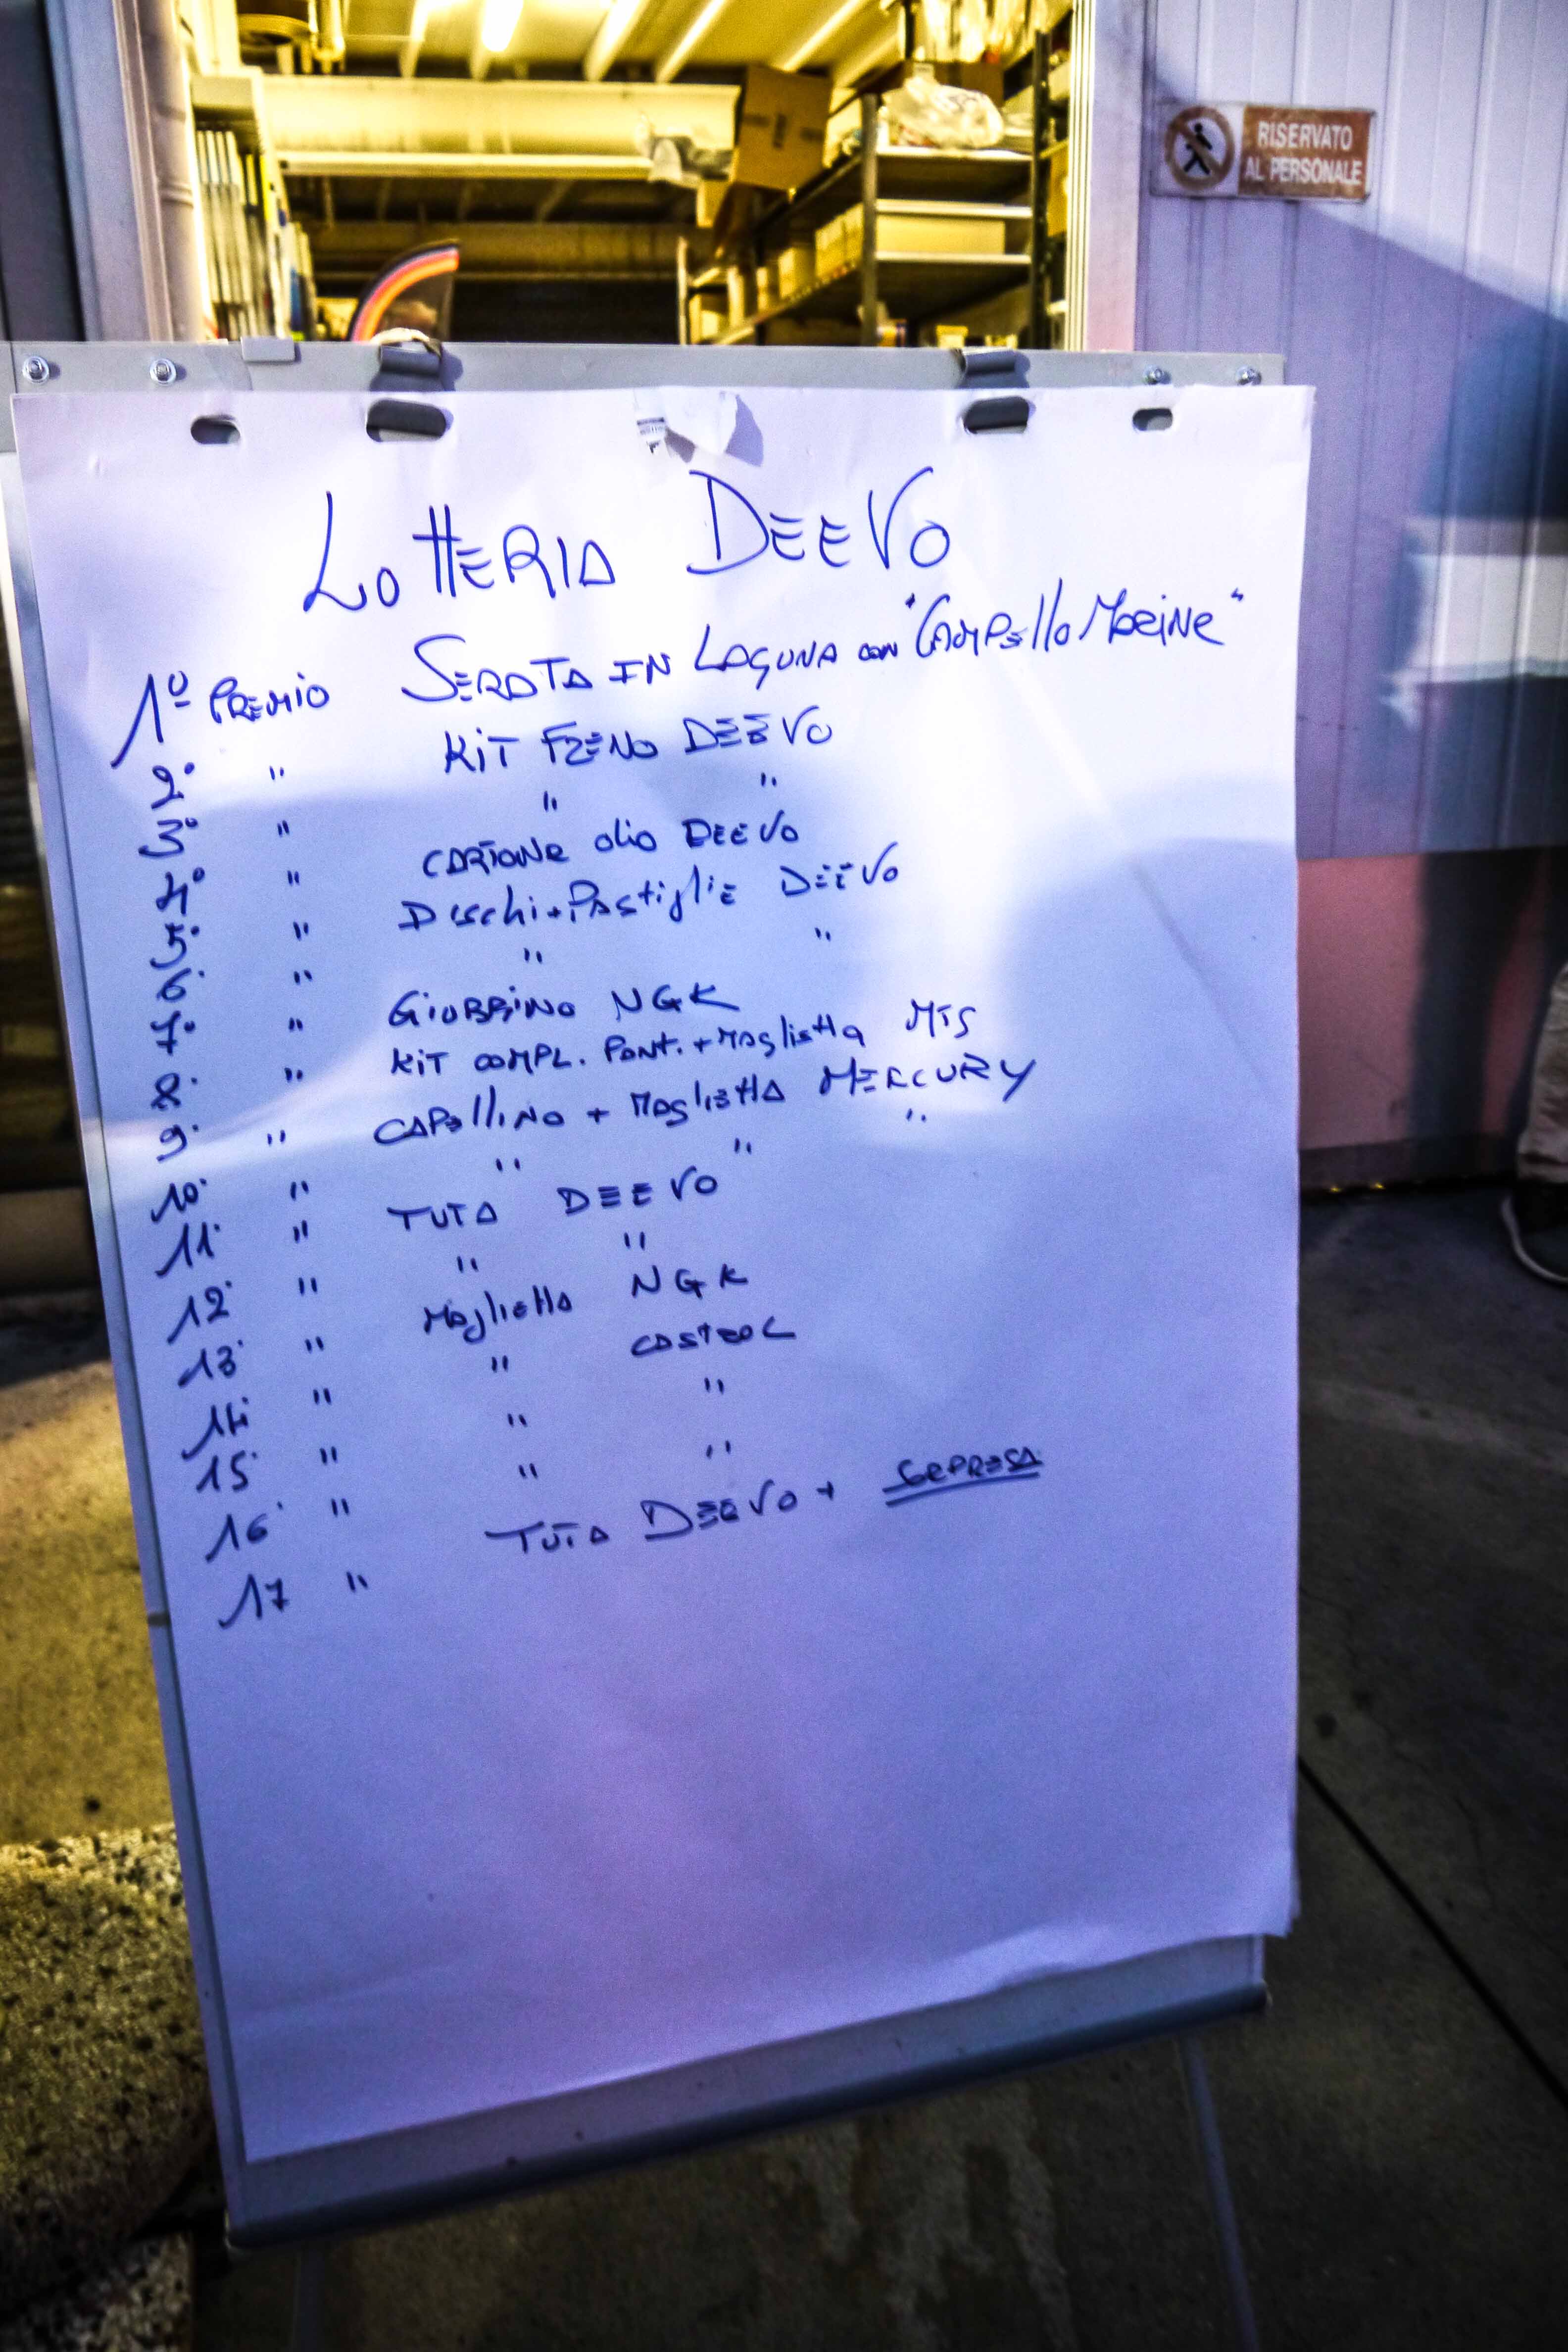 RISERVATO
AL PERSONALE
LOTTERIA DEEVO
1º PREMIO SERATA IN LAGUNA CON "CAMPELLO MARINE"
2° " KIT FRENO DEEVO
3° " " "
4° " CARTONE OLIO DEEVO
5° " DISCHI + PASTIGLIE DEEVO
6° " " "
7° " GIUBBINO NGK
8° " KIT COMPL. PANT. + MAGLIETTA MTS
9° " CAPELLINO + MAGLIETTA MERCURY
10° " " " "
11° " TUTA DEEVO
12° " " "
13° " MAGLIETTA NGK
14° " " CASTROL
15° " " "
16° " " "
17 " TUTA DEEVO + SORPRESA